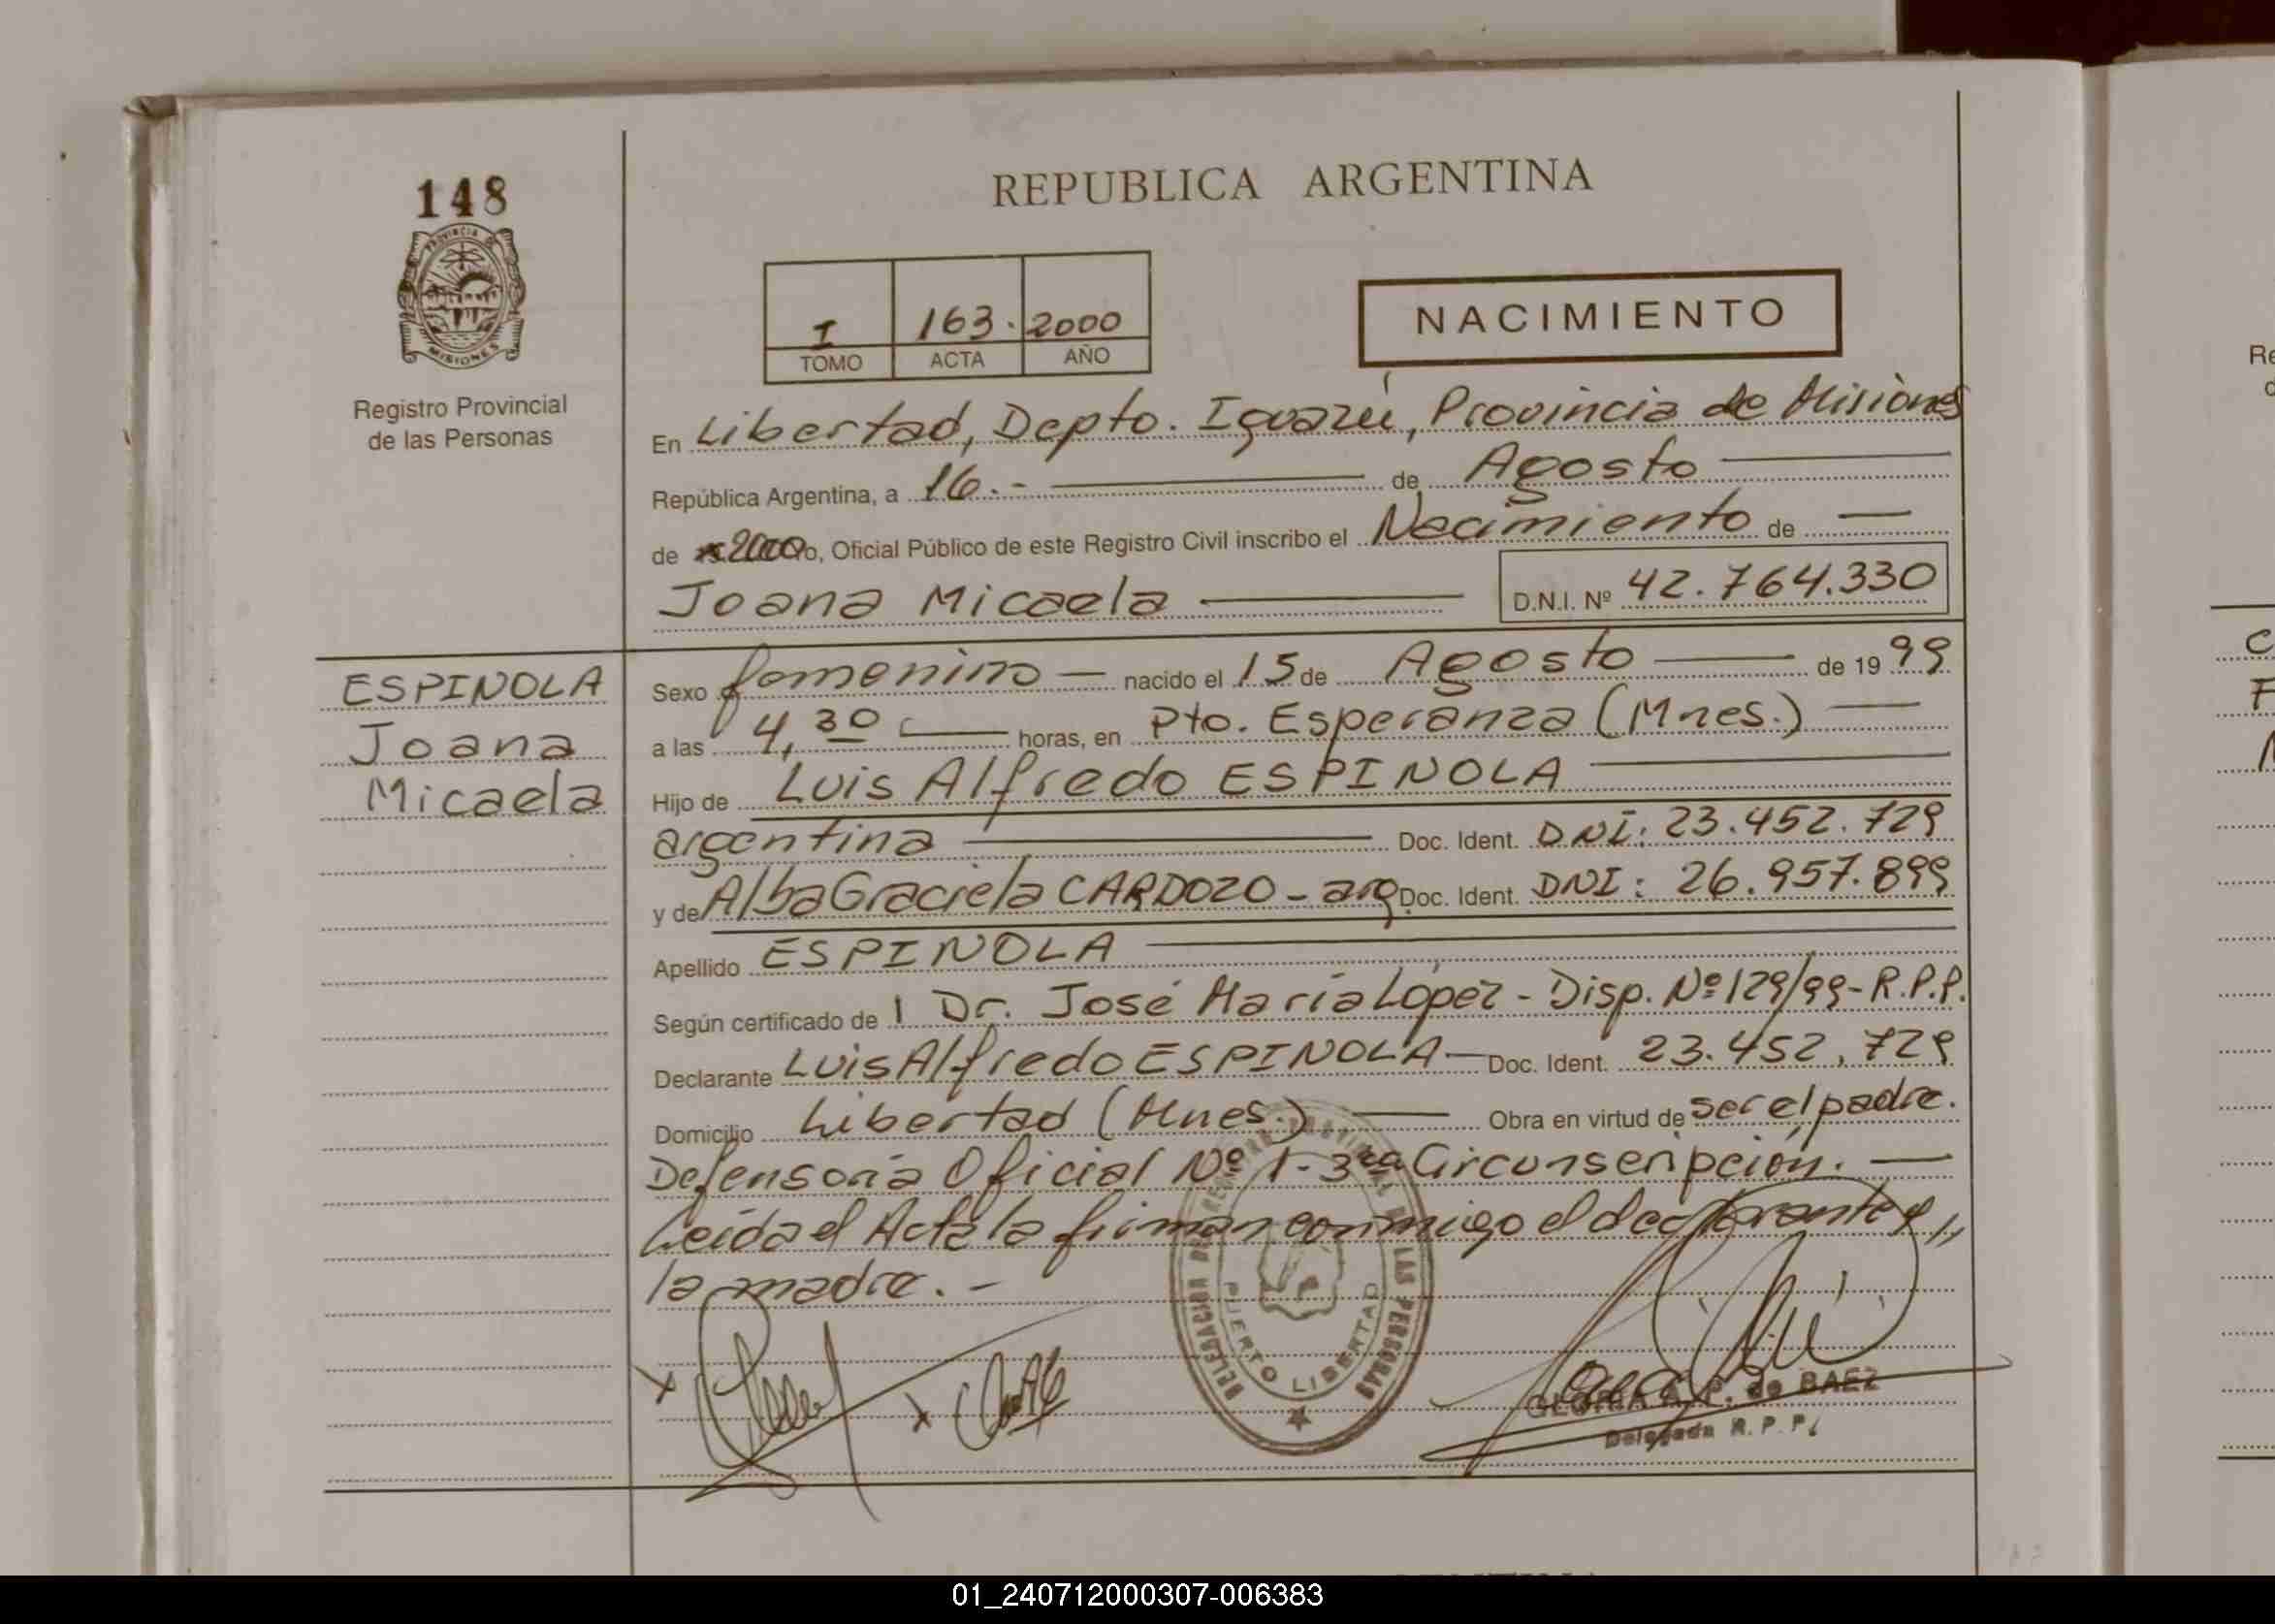 148
PROVINCIA DE
MISIONES
Registro Provincial
de las Personas
REPUBLICA ARGENTINA
I 163. 2000
TOMO ACTA AÑO
NACIMIENTO
En Libertad, Depto. Iguazú, Provincia de Misiones
República Argentina, a 16.- de Agosto
de 2000 yo, Oficial Público de este Registro Civil inscribo el Nacimiento de
Joana Micaela D.N.I. Nº 42.764.330
ESPINOLA
Joana
Micaela
Sexo femenino nacido el 15 de Agosto de 1999
a las 4,30 horas, en Pto. Esperanza (Mnes.)
Hijo de Luis Alfredo ESPINOLA
argentina Doc. Ident. DNI: 23.452.729
y de Alba Graciela CARDOZO - arg Doc. Ident. DNI: 26.957.899
Apellido ESPINOLA
Según certificado de 1 Dr. José María López - Disp. Nº 129/99 - R.P.P.
Declarante Luis Alfredo ESPINOLA Doc. Ident. 23.452.729
Domicilio Libertad (Mnes.) Obra en virtud de ser el padre.
Defensoría Oficial Nº 1 - 3ra Circunscripción.
Leída el Acta la firman conmigo el declarante y
la madre. -
DELEGACION DEL REGISTRO PROVINCIAL DE LAS PERSONAS
PUERTO LIBERTAD
GLORIA A. P. de BAEZ
Delegada R.P.P.
01_240712000307-006383